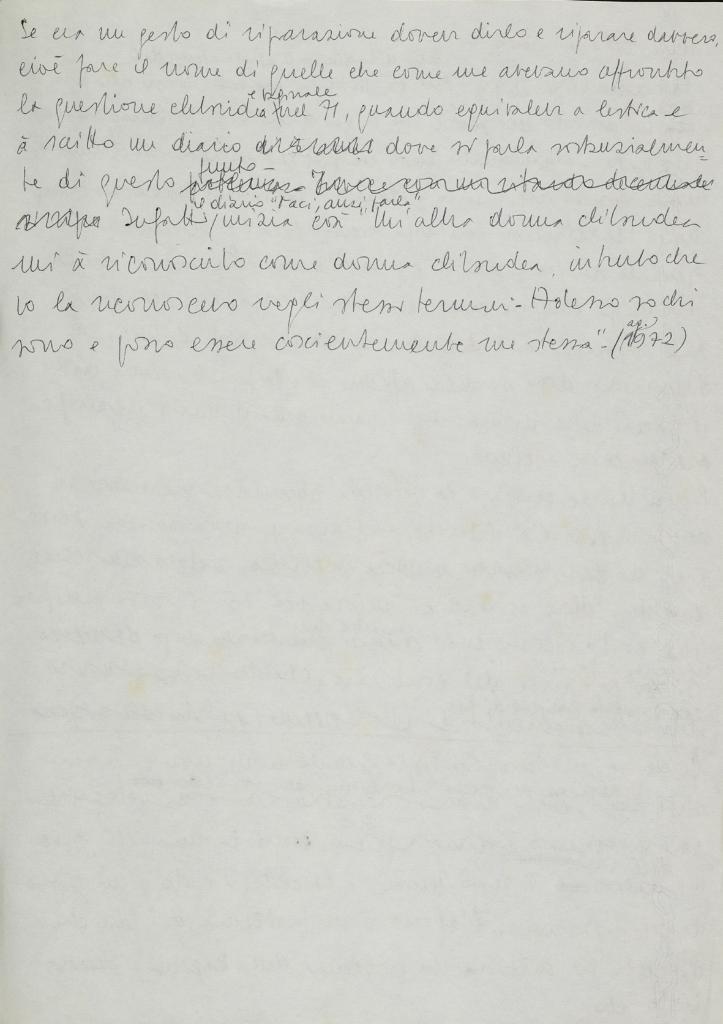 Se era un gesto di riparazione dovevi dirlo e riparare davvero,
cioè fare il nome di quelle che come me avevano affrontato
la questione clitoridea e vaginale nel 71, quando equivaleva a lesbica e
à scritto un diario dove si parla sostanzialmen-
te di questo punto
Infatti, il diario "Taci, anzi parla" inizia così "Un'altra donna clitoridea
mi à riconosciuto come donna clitoridea, intanto che
io la riconoscevo negli stessi termini - Adesso so chi
sono e posso essere coscientemente me stessa" - (ag. 1972)